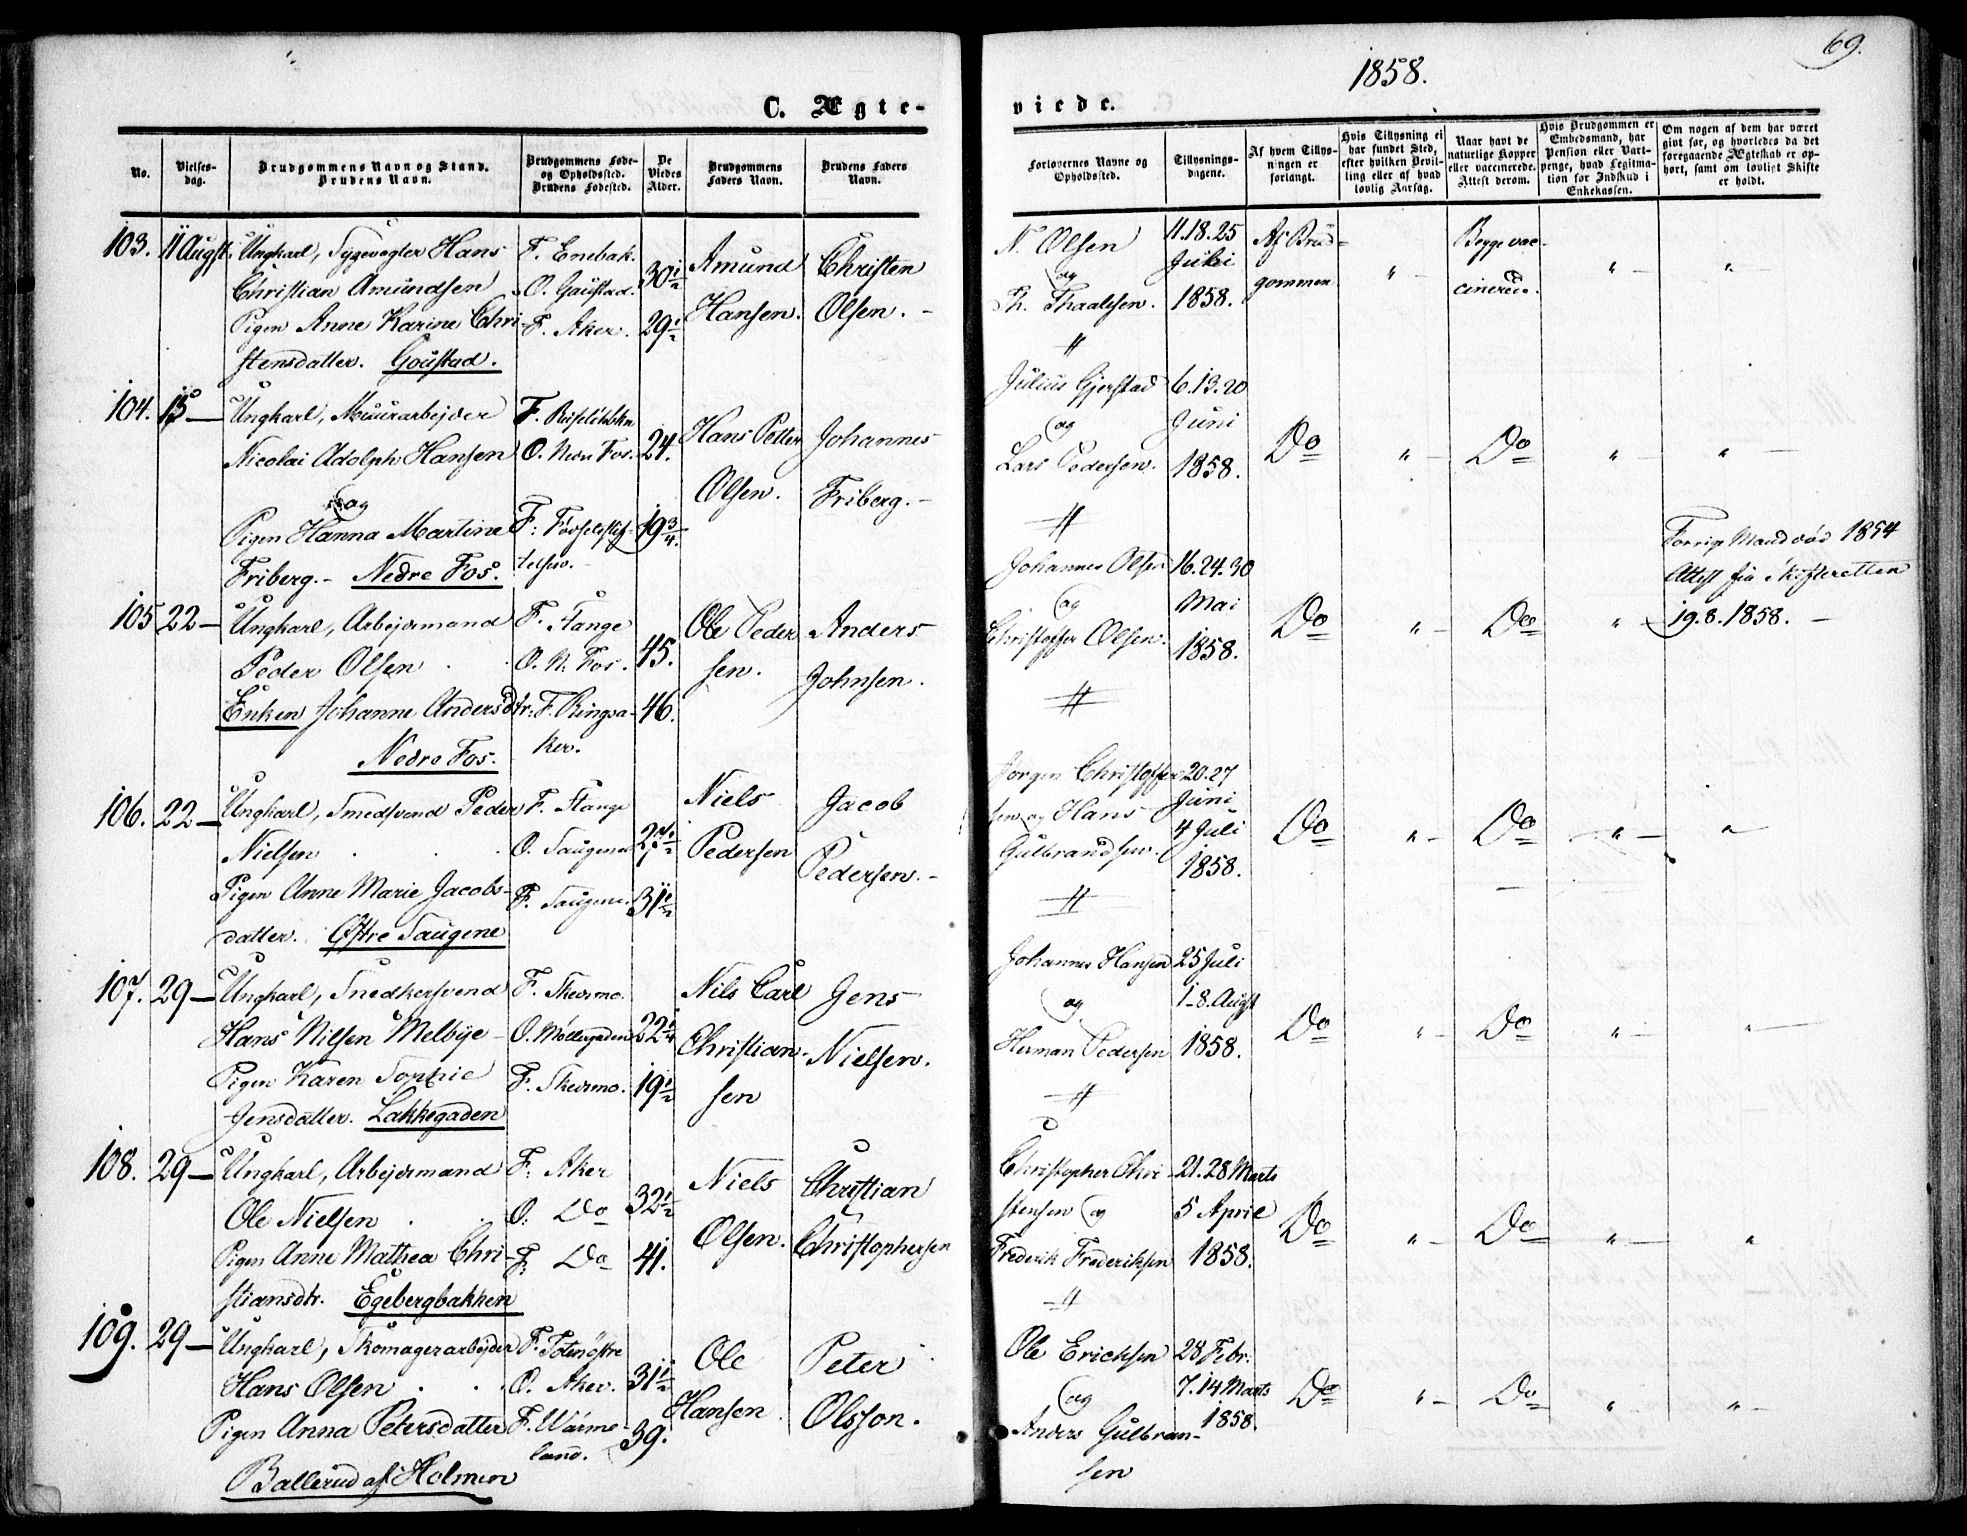 69.
1858.
C. Ægte-
viede.
No.
Vielses-
dag.
Brudgommens Navn og Stand.
Brudens Navn.
Brudgommens Føde-
og Opholdssted.
Brudens Fødested.
De
Viedes
Alder.
Brudgommens
Faders Navn.
Brudens Faders
Navn.
Forlovernes Navne og
Opholdssted.
Tillysnings-
dagene.
Af hvem Tillys-
ningen er
forlangt.
Hvis Tillysning ei
har fundet Sted,
efter hvilken Bevil-
ling eller af hvad
lovlig Aarsag.
Naar havt de
naturlige Kopper
eller vaccinerede.
Attest derom.
Hvis Brudgommen er
Embedsmand, har
Pension eller Vart-
penge, hvad Legitima-
tion for Indskud i
Enkekassen.
Om nogen af dem har været
gift før, og hvorledes da det
foregaaende Ægteskab er op-
hørt, samt om lovligt Skifte
er holdt.
103. 11 Augst. Ungkarl, Sygevogter Hans
Christian Amundsen
Pigen Anne Karine Chri-
stensdatter. Goustad.
F. Enebak.
O. Gaustad.
F. Aker.
30 1/2
29 1/2
Amund
Hansen.
Christen
Olsen.
N. Olsen
og
Th. Thaalesen.
11.18.25
Juli
1858.
Af Brud-
gommen
" Begge vac-
cinerede.
" "
104. 15 — Ungkarl, Muurarbejder
Nicolai Adolph Hansen
og
Pigen Hanna Martine
Friberg. — Nedre Fos.
O. Nedre Fos.
F. Fødselsstif-
telsen.
24.
19 3/4.
Hans Petter
Olsen.
Johannes
Friberg. —
Julius Gjerstad
og
Lars Pedersen.
6.13.20
Juni
1858.
Do " Do " "
105 22 — Ungkarl, Arbejdsmand
Peder Olsen
Enken Johanne Andersdtr:
Nedre Fos.
F. Stange
O. N. Fos.
F. Ringsa-
ker.
45.
46.
Ole Peder
sen.
Anders
Johnsen.
Johannes Olsen
og
Christoffer Olsen.
16.24.30
Mai
1858.
Do " Do "
Forrige Mand død 1854
Attest fra Skifteretten
19.8.1858. —
106. 22 — Ungkarl, Smedsvend Peder
Nielsen
Pigen Anne Marie Jacobs-
datter. Østre Saugene
F. Stange
O. Saugene
F. Saugene.
27 1/2
31 1/2
Niels
Pedersen
Jacob
Pedersen. —
Jørgen Christoffer
sen og Hans
Gulbrandsen.
20.27
Juni
4 Juli
1858.
Do " Do " "
107. 29 — Ungkarl, Snedkersvend
Hans Nilsen Melbye
Pigen Karen Sophie
Jensdatter. Lakkegaden
F. Skedsmo.
O. Møllergaden
F. Skedsmo.
22 1/4
19 1/2
Nils Carl
Christian-
sen
Jens
Nielsen.
Johannes Hansen
og
Herman Pedersen
25 Juli
1-8. Augst
1858.
Do " Do " "
108. 29 — Ungkarl, Arbejdsmand
Ole Nielsen
Pigen Anne Mathea Chri-
stiansdtr. Egebergbakken
F: Aker
O: Do
F: Do
32 1/2
41.
Niels
Olsen.
Christian
Christophersen
Christopher Chri-
stensen og
Frederik Frederiksen
21.28 Marts
5 April
1858.
Do " Do " "
109. 29 — Ungkarl, Skomagerarbejder
Hans Olsen
Pigen Anna Petersdatter
Ballerud af Holmen
F. Toten østre
O. Aker.
F. Wärme-
land.
31 1/2
39.
Ole
Hansen
Peter
Olsson.
Ole Ericksen
og
Anders Gulbran-
sen
28 Febr.
7.14 Marts
1858.
Do " Do " "